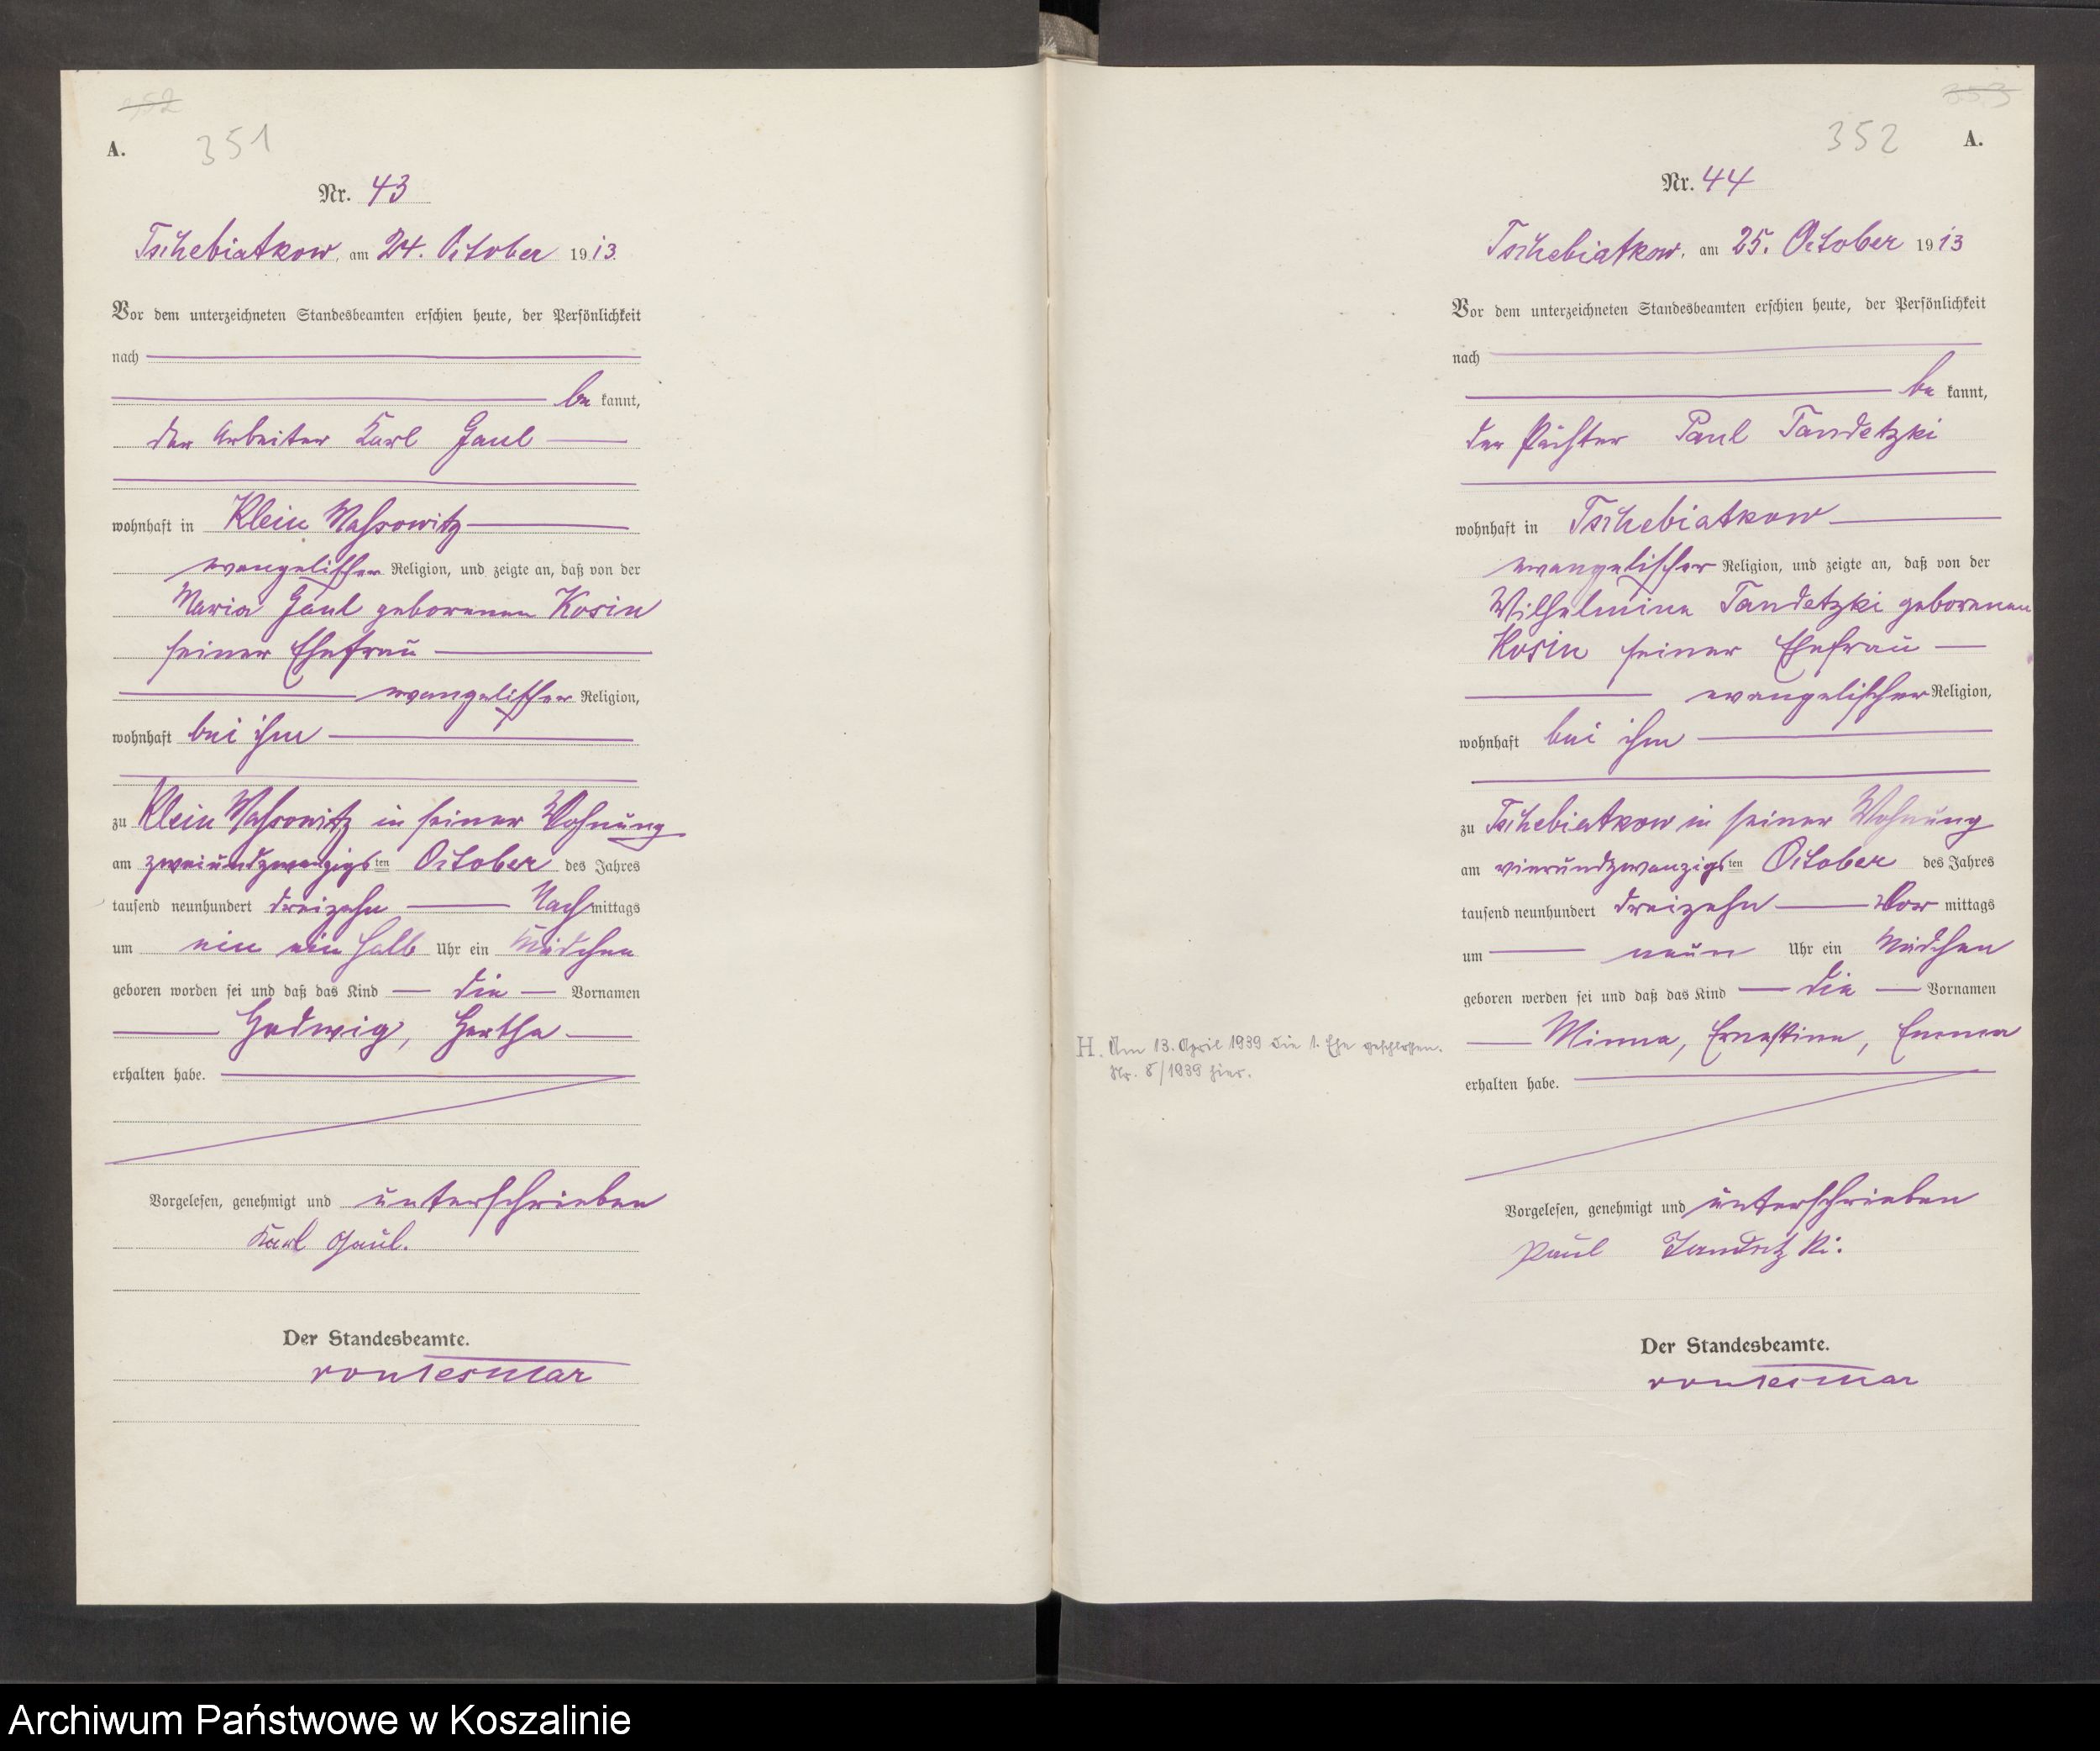 352
A.
351
Nr. 43
Tschebiatkow, am 24. October 1913.
Vor dem unterzeichneten Standesbeamten erschien heute, der Persönlichkeit
nach
be kannt,
der Arbeiter Karl Gaul
wohnhaft in Klein Massowitz
evangelischer Religion, und zeigte an, daß von der
Maria Gaul geborenen Kosin
seiner Ehefrau
evangelischer Religion,
wohnhaft bei ihm
zu Klein Massowitz in seiner Wohnung
am zweiundzwanzigsten October des Jahres
tausend neunhundert dreizehn Nachmittags
um ein ein halb Uhr ein Mädchen
geboren worden sei und daß das Kind die Vornamen
Hedwig, Hertha
erhalten habe.
Vorgelesen, genehmigt und unterschrieben
Karl Gaul.
Der Standesbeamte.
353
352
A.
Nr. 44
Tschebiatkow, am 25. October 1913
Vor dem unterzeichneten Standesbeamten erschien heute, der Persönlichkeit
nach
be kannt,
der Pächter Paul Tandetzki
wohnhaft in Tschebiatkow
evangelischer Religion, und zeigte an, daß von der
Wilhelmine Tandetzki geborenen
Kosin seiner Ehefrau
evangelischer Religion,
wohnhaft bei ihm
zu Tschebiatkow in seiner Wohnung
am vierundzwanzigsten October des Jahres
tausend neunhundert dreizehn Vor mittags
um neun Uhr ein Mädchen
geboren worden sei und daß das Kind die Vornamen
Minna, Ernestine, Emma
erhalten habe.
H. Am 13. April 1939 die 1. Ehe geschlossen.
Nr. 8/1939 hier.
Vorgelesen, genehmigt und unterschrieben
Paul Tandetzki.
Der Standesbeamte.
Archiwum Państwowe w Koszalinie